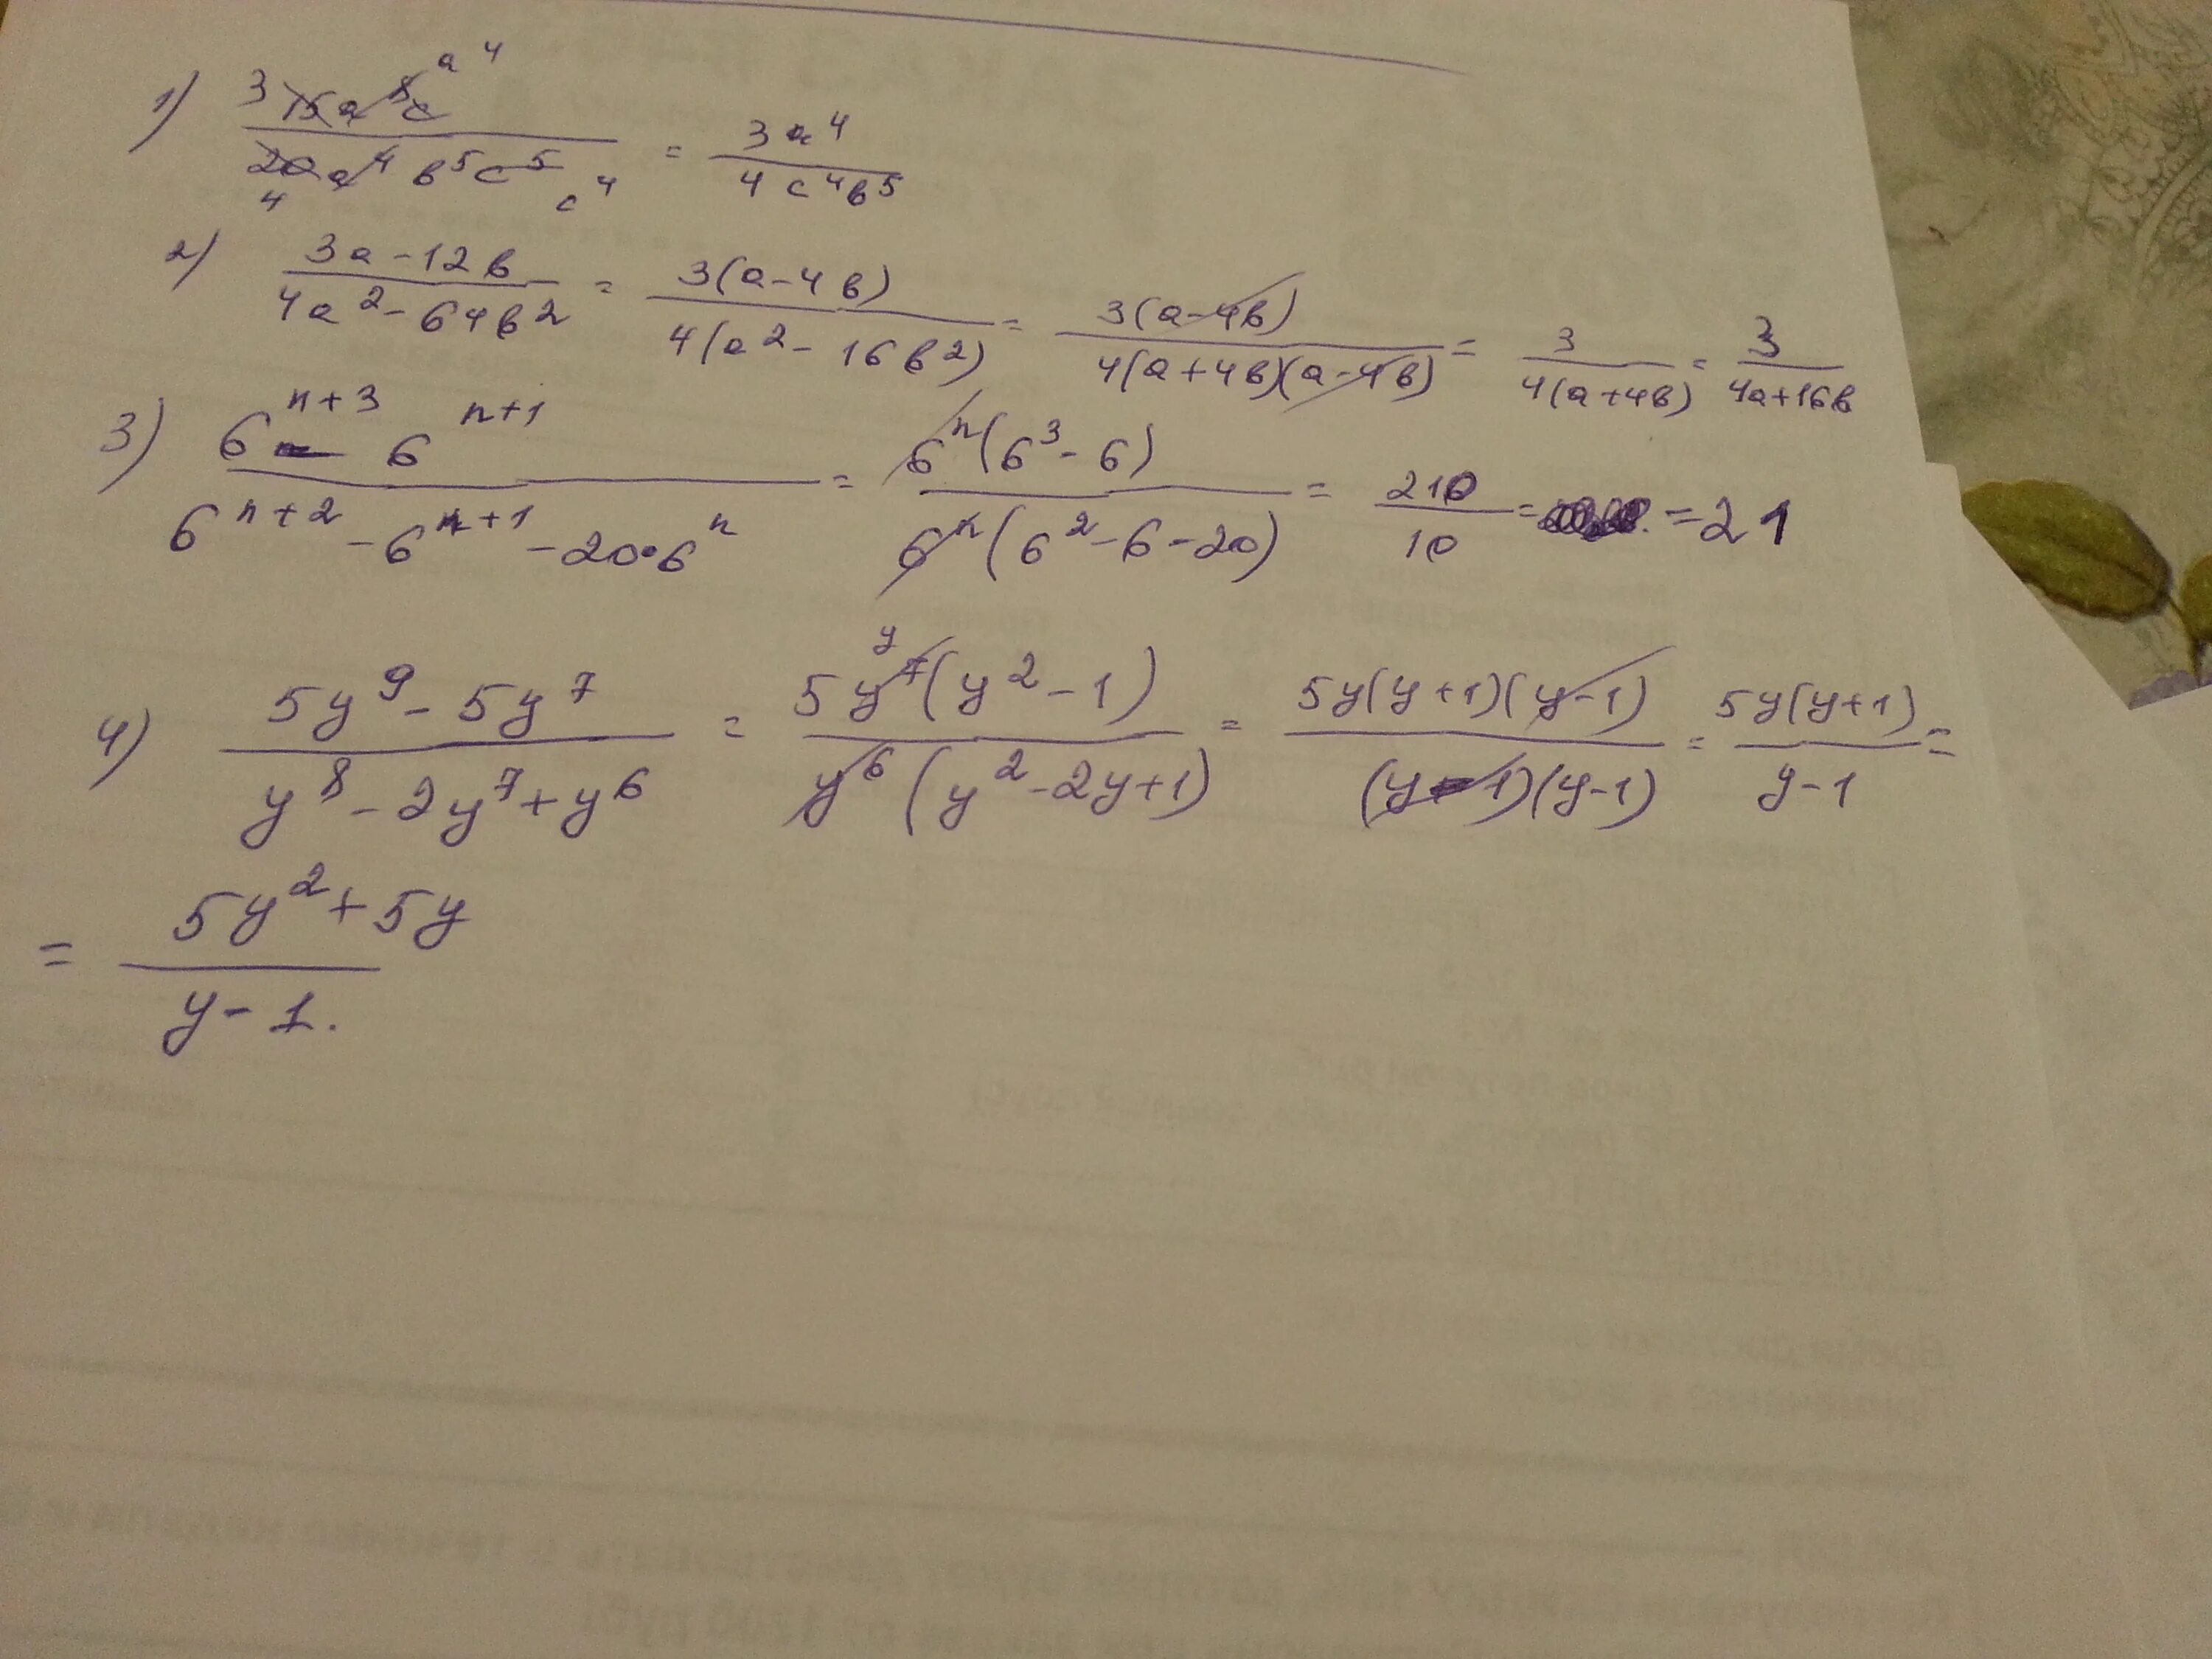 1) 3 15a^8c a^4 / 20a^4 b^5c^5 4 c^4 = 3a^4 / 4c^4b^5
2) 3a-12b / 4a^2-64b^2 = 3(a-4b) / 4(a^2-16b^2) = 3(a-4b) / 4(a+4b)(a-4b) = 3 / 4(a+4b) = 3 / 4a+16b
3) 6^{n+3} - 6^{n+1} / 6^{n+2} - 6^{n+1} - 20·6^n = 6^n(6^3-6) / 6^n(6^2-6-20) = 210 / 10 = = 21
4) 5y^9 - 5y^7 / y^8 - 2y^7 + y^6 = 5y^7 y (y^2-1) / y^6(y^2-2y+1) = 5y(y+1)(y-1) / (y-1)(y-1) = 5y(y+1) / y-1 =
= 5y^2+5y / y-1.